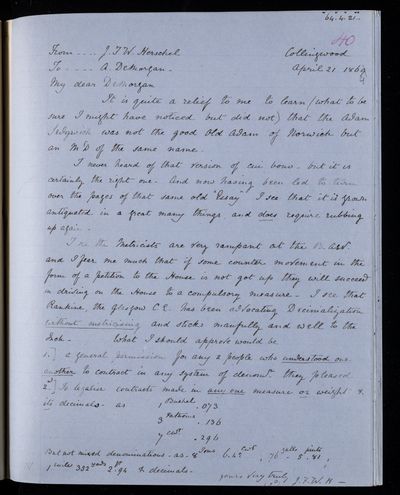 64.4.21.
40
From ---- J.F.W. Herschel Collingwood
To ----- A. DeMorgan - April 21 1864
My dear DeMorgan
It is quite a relief to me to learn (what to be
sure I might have noticed but did not) that the Adam
Sedgwick was not the good old Adam of Norwich but
an M.D of the same name.
I never heard of that version of cui bono - but it is
certainly the right one - And now having been led to turn
over the pages of that same old "Essay" I see that it is grown
antiquated in a great many things, and does require rubbing
up again -
I see the Metricists are very rampant at the
and I fear me much that if some counter movement in the
form of a petition to the House is not got up they will succeed
in driving on the House to a compulsory measure - I see that
Rankine, the Glasgow C.E. has been advocating Decimalization
without metricising and sticks manfully and well to the
Inch - What I should approve would be
1.] a general permission for any 2 people who understood one
another to contract in any system of denomns they pleased
2.] To legalize contracts made in any one measure or weight &
its decimals - as 1 Bushel . 073
3 fathoms . 136
7 cwt . 296
But not mixed denominations - as - 8 Tons 6.42 cwt , 76 galls 5 pints .81 ;
1 mile 332 yards 2 ft .94 & decimals -
yours very truly
J.F.W. H -